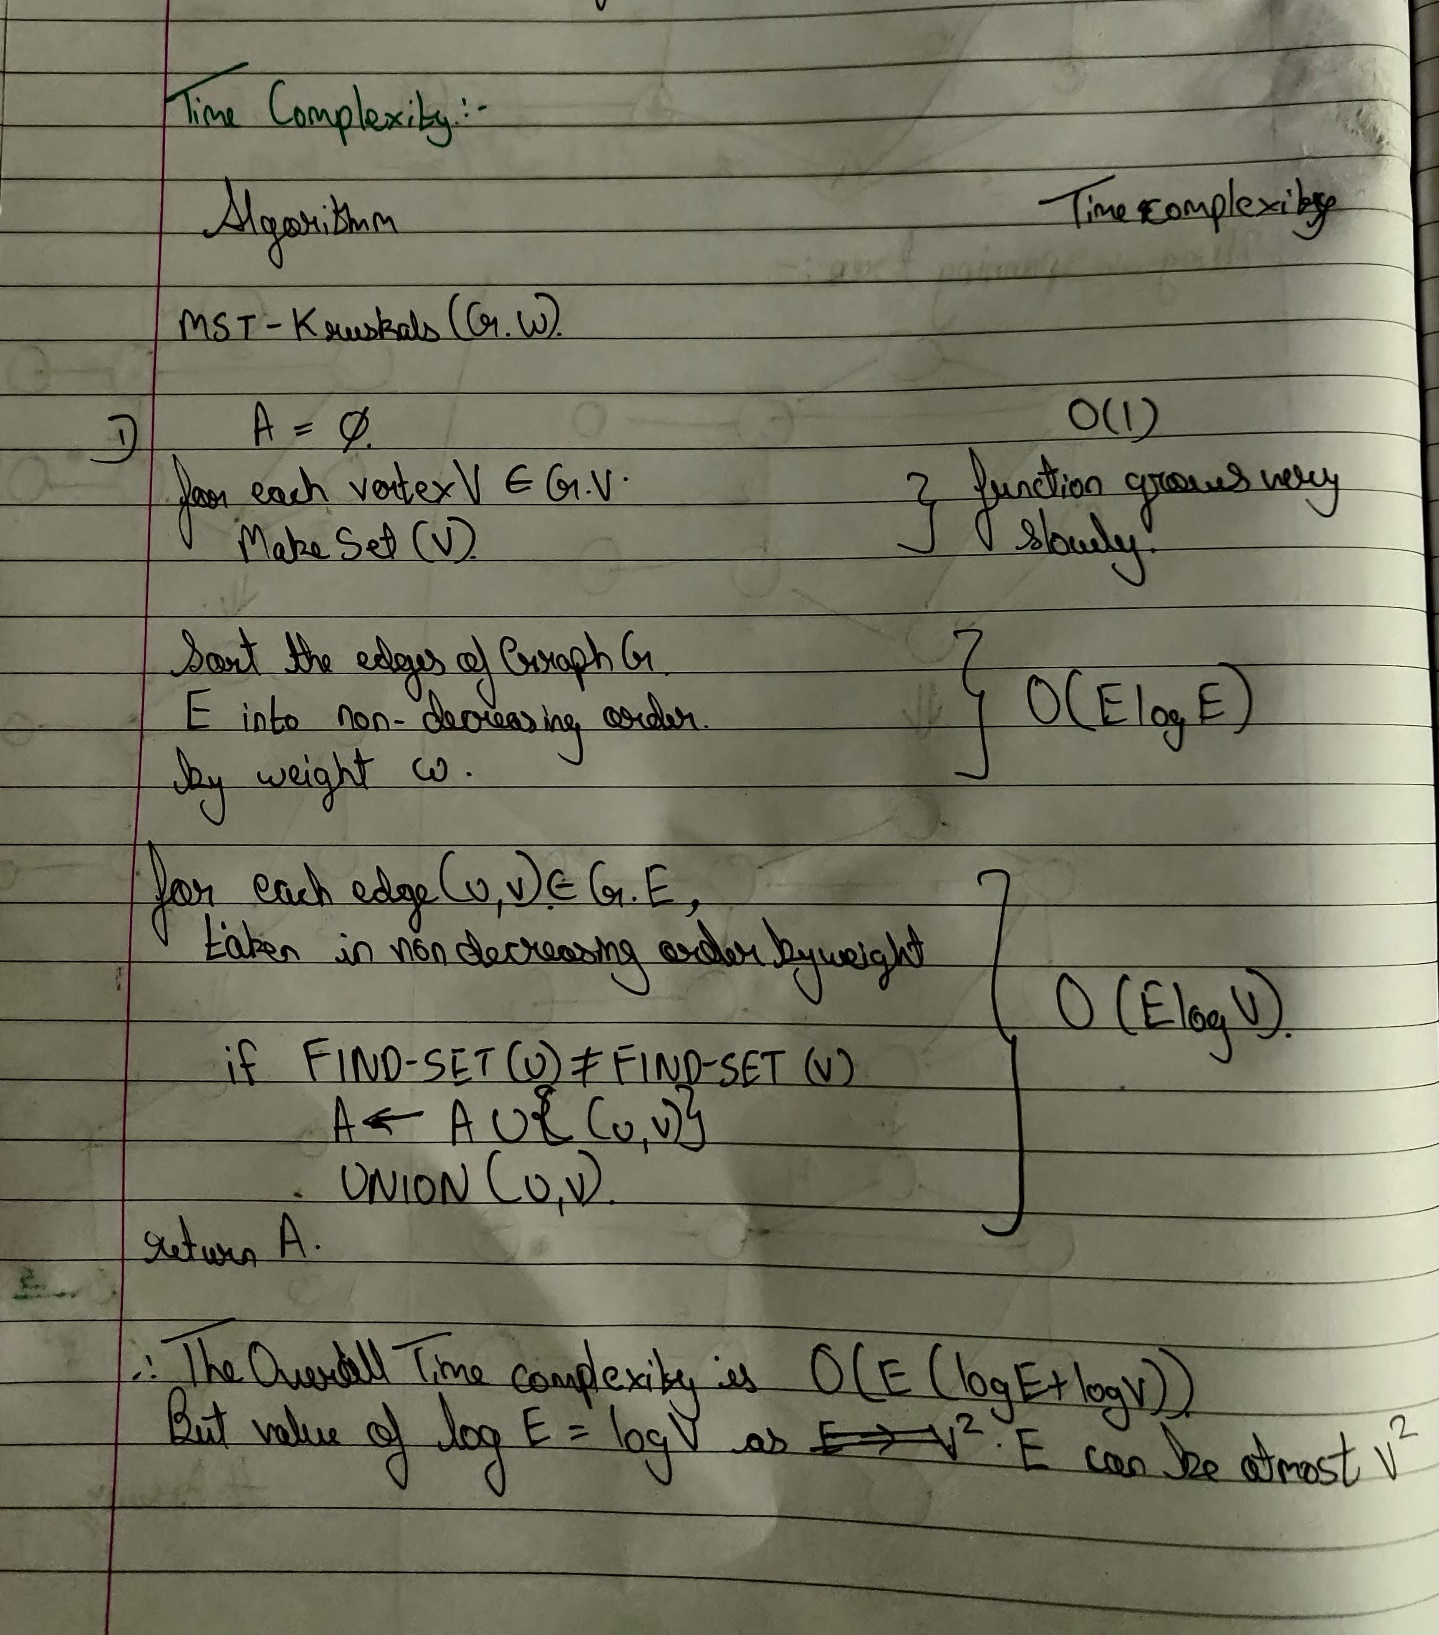 Time Complexity:-
Algorithm Time complexity
MST-Kruskals (G.W).
1) A = ∅. O(1)
for each vertex V ∈ G.V. } function grows very
Make Set (V). slowly.
Sort the edges of Graph G.
E into non-decreasing order. } O(E log E)
by weight w.
for each edge (u,v) ∈ G.E,
taken in non decreasing order by weight
} O(E log V).
if FIND-SET(u) ≠ FIND-SET (v)
A ← A ∪ { (u,v)}
UNION (u,v).
return A.
∴ The Overall Time complexity is O(E (logE+logV)).
But value of log E = log V as E can be atmost V²